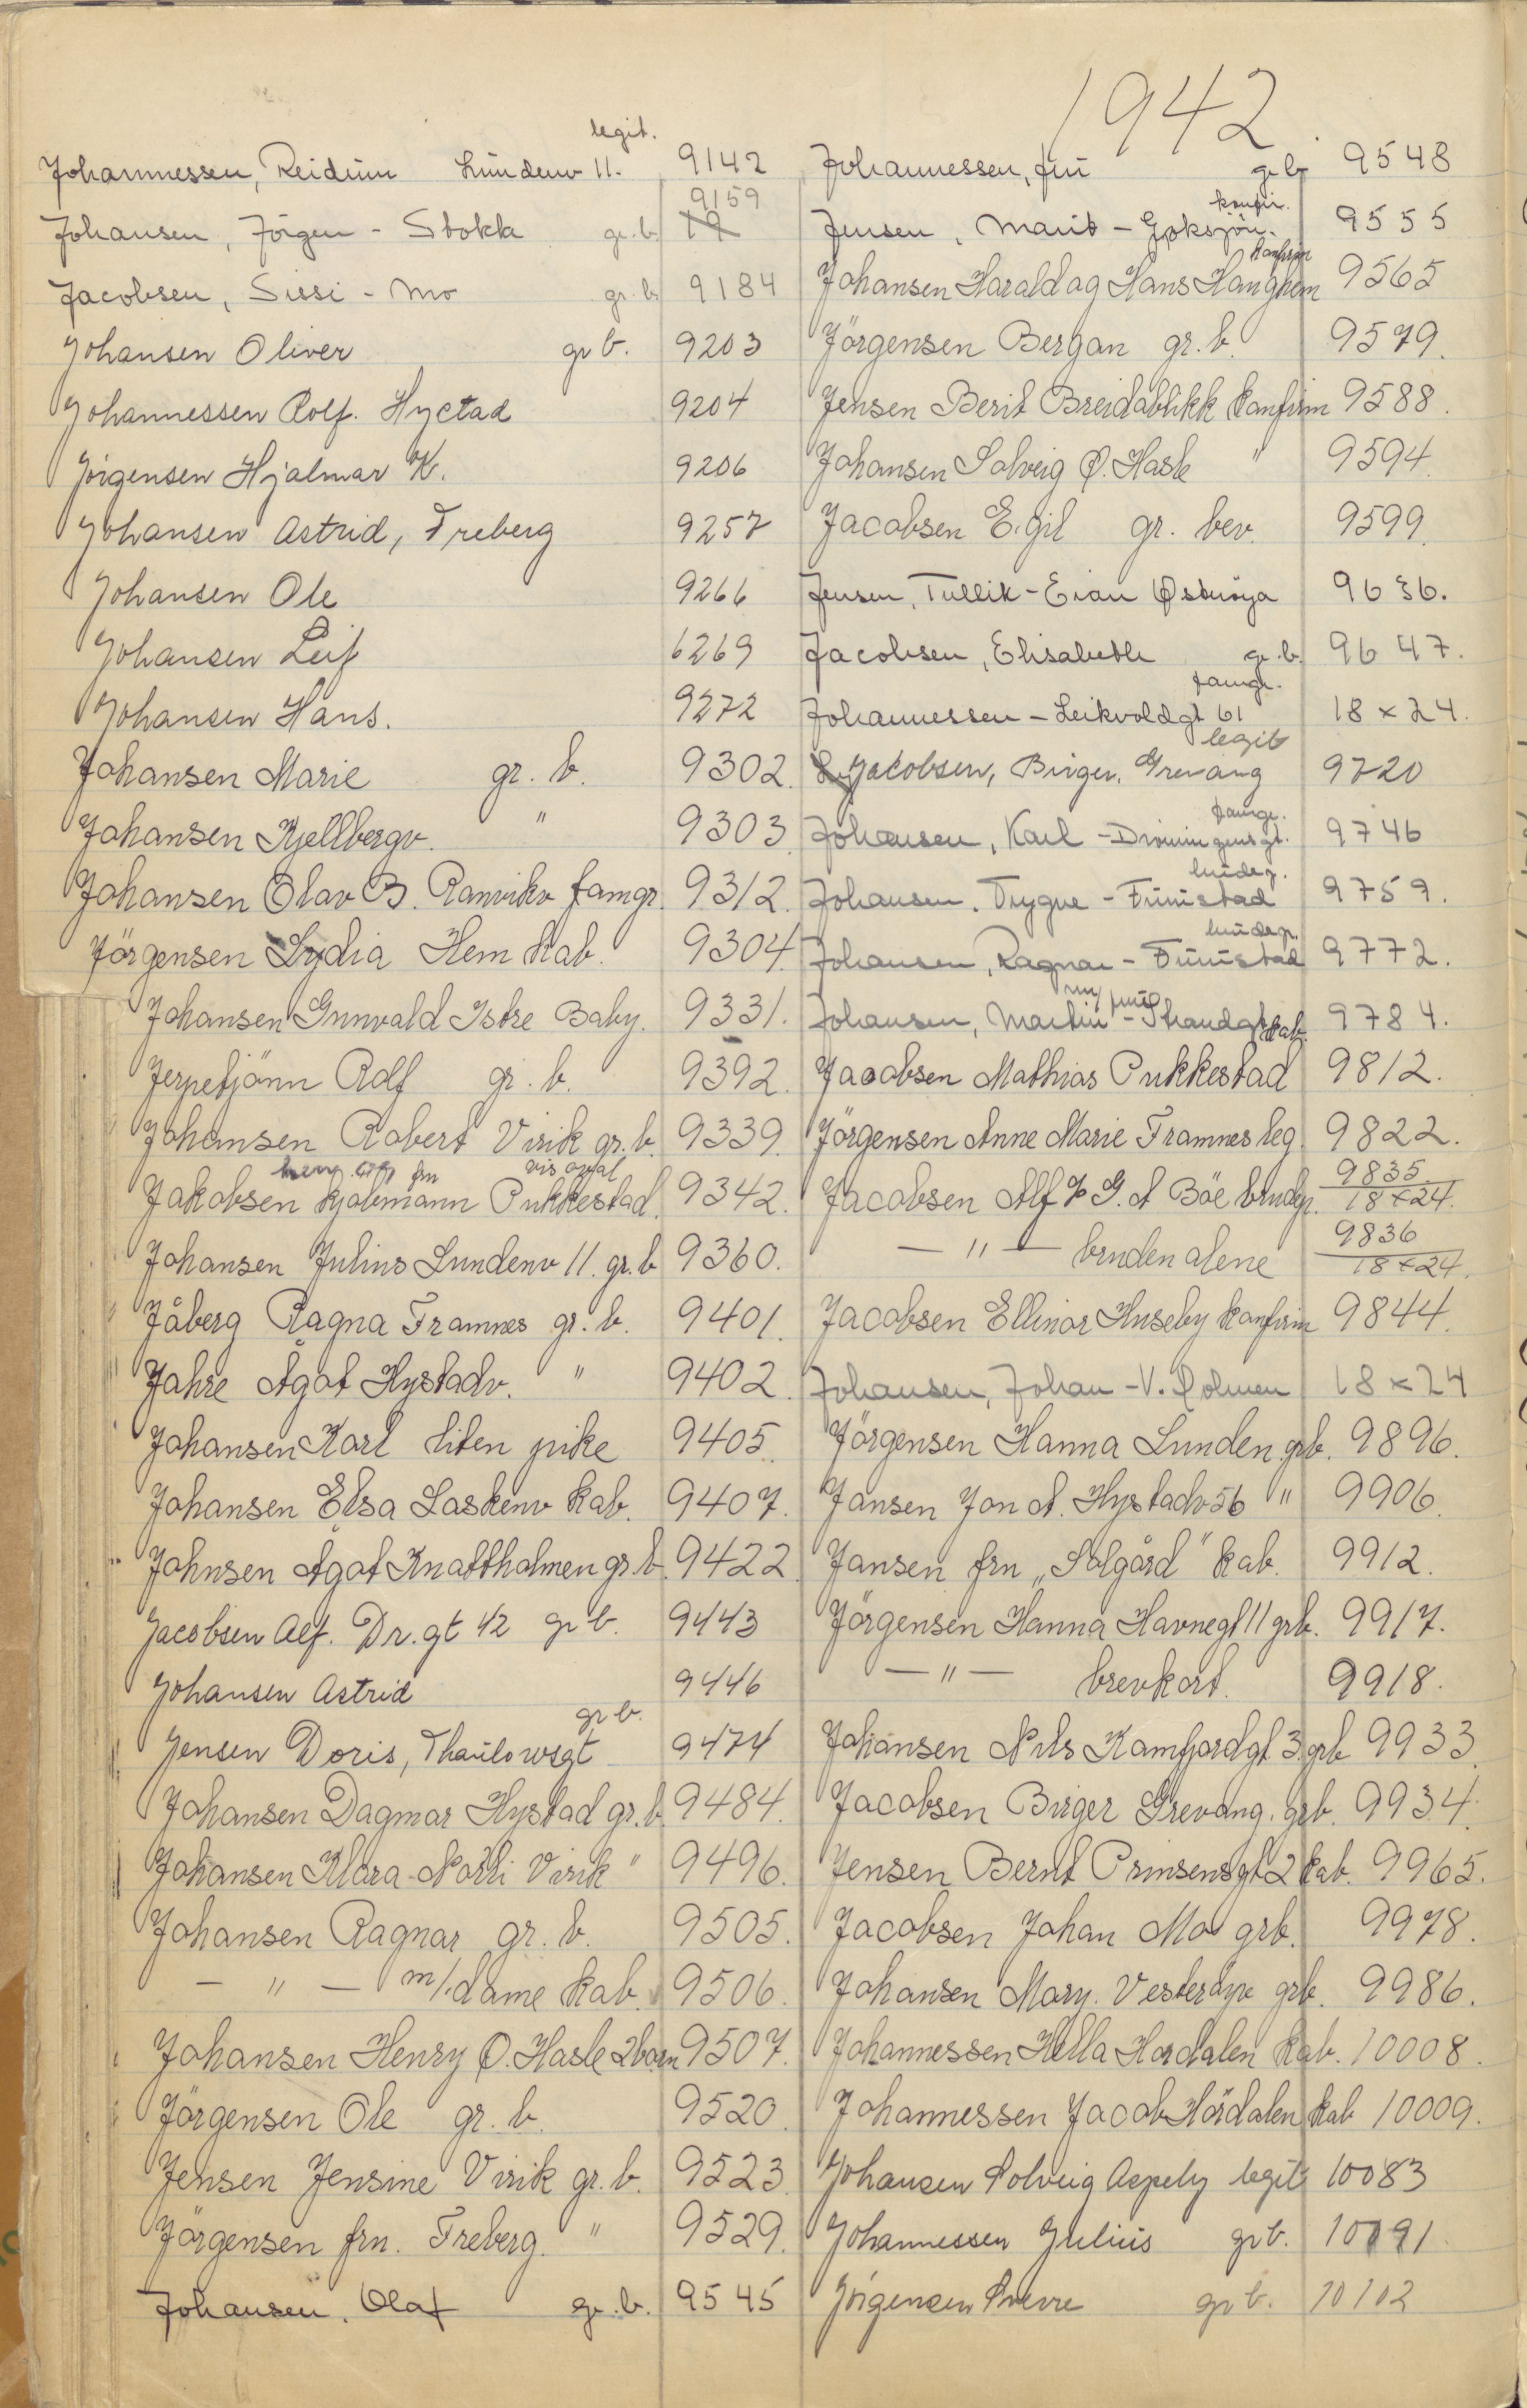 1942
legit.
Johannessen, Reidun Lundenv 11. 9142
Johansen, Jörgen - Stokke gr.b. 9159
Jacobsen, Sissi - Mo gr.b. 9184
Johansen Oliver gr b. 9203
Johannessen Rolf. Hyctad 9204
Jörgensen Hjalmar K. 9206
Johansen Astrid, Freberg 9257
Johansen Ole 9266
Johansen Leif 6269
Johansen Hans. 9272
Johansen Marie gr. b. 9302.
Johansen Kjellbergv. " 9303
Johansen Olav B. Ranvikv famgr. 9312.
Jörgensen Lydia Hem kab. 9304.
Johansen Gunvald Istre Baby. 9331.
Jerpetjönn Rolf gr. b. 9392.
Johansen Robert Virik gr. b. 9339.
vis oval
Jakobsen Hjalmann Pukkestad. 9342.
Johansen Julius Lundenv 11. gr. b 9360.
Jåberg Ragna Framnes gr. b. 9401.
Jahre Ågot Hystadv. " 9402.
Johansen Karl liten pike 9405.
Johansen Elsa Laskenv kab. 9407.
Johnsen Ågot Knattholmen gr. b. 9422
Jacobsen Alf. Dr. gt 42 gr b. 9443
Johansen Astrid 9446
gr b.
Jensen Doris, Thaulowsgt 9474
Johansen Dagmar Hystad gr. b. 9484.
Johansen Klara - Norli Virik " 9496.
Johansen Ragnar gr. b. 9505.
— " — m/. dame kab. 9506.
Johansen Henry Ø. Hasle 2 barn 9507.
Jörgensen Ole gr. b. 9520.
Jensen Jensine Virik gr. b. 9523.
Jörgensen fru. Freberg. " 9529.
Johansen. Olaf gr. b. 9545
Johannessen, fru gr b 9548
konfir.
Jensen, Marit - Goksjön. 9555
konfirm
Johansen Harald og Hans Haughem 9565
Jörgensen Bergan gr. b. 9579.
Jensen Berit Breidablikk konfirm 9588.
Johansen Solveig Ø. Hasle " 9594.
Jacobsen Egil gr. bev. 9599.
Jensen, Tullik - Eian Østerøya 9636.
Jacobsen, Elisabeth gr. b. 9647.
famgr.
Johannessen - Leikvoldgt 61 18 x 24.
legit
Jacobsen, Birger. Grevang 9720
famgr.
Johansen, Karl - Dronningensgt. 9746
brudep.
Johansen. Trygve - Furustad 9759.
brudep.
Johansen, Ragnar - Furustad 9772.
Johansen, Martin - Strandgt kab. 9784.
Jacobsen Mathias Pukkestad 9812.
Jörgensen Anne Marie Framnes leg. 9822.
Jacobsen Alf % G. A Böe brudep. 9835 18 x 24.
— " — bruden alene 9836 18 x 24.
Jacobsen Ellinor Huseby konfirm 9844.
Johansen, Johan - V. Holmen 18 x 24
Jörgensen Hanna Lunden. grb. 9896.
Jansen Jon A. Hystadv 56 " 9906.
Jansen fru „Solgård" kab. 9912.
Jörgensen Hanna Havnegt 11 grb. 9917.
— " — brevkort. 9918.
Johansen Nils Kamfjordgt. 3. grb 9933.
Jacobsen Birger Grevang. grb. 9934.
Jensen Bernt Prinsensgt 2 kab. 9965.
Jacobsen Johan Mo grb. 9978.
Johansen Mary. Vesterøyv grb. 9986.
Johannessen Hella Hördalen kab. 10008.
Johannessen Jacob Hördalen kab 10009.
Johansen Solveig Aspely legit 10083
Johannessen Julius gr b. 10091.
Jörgensen Sverre gr b. 10102